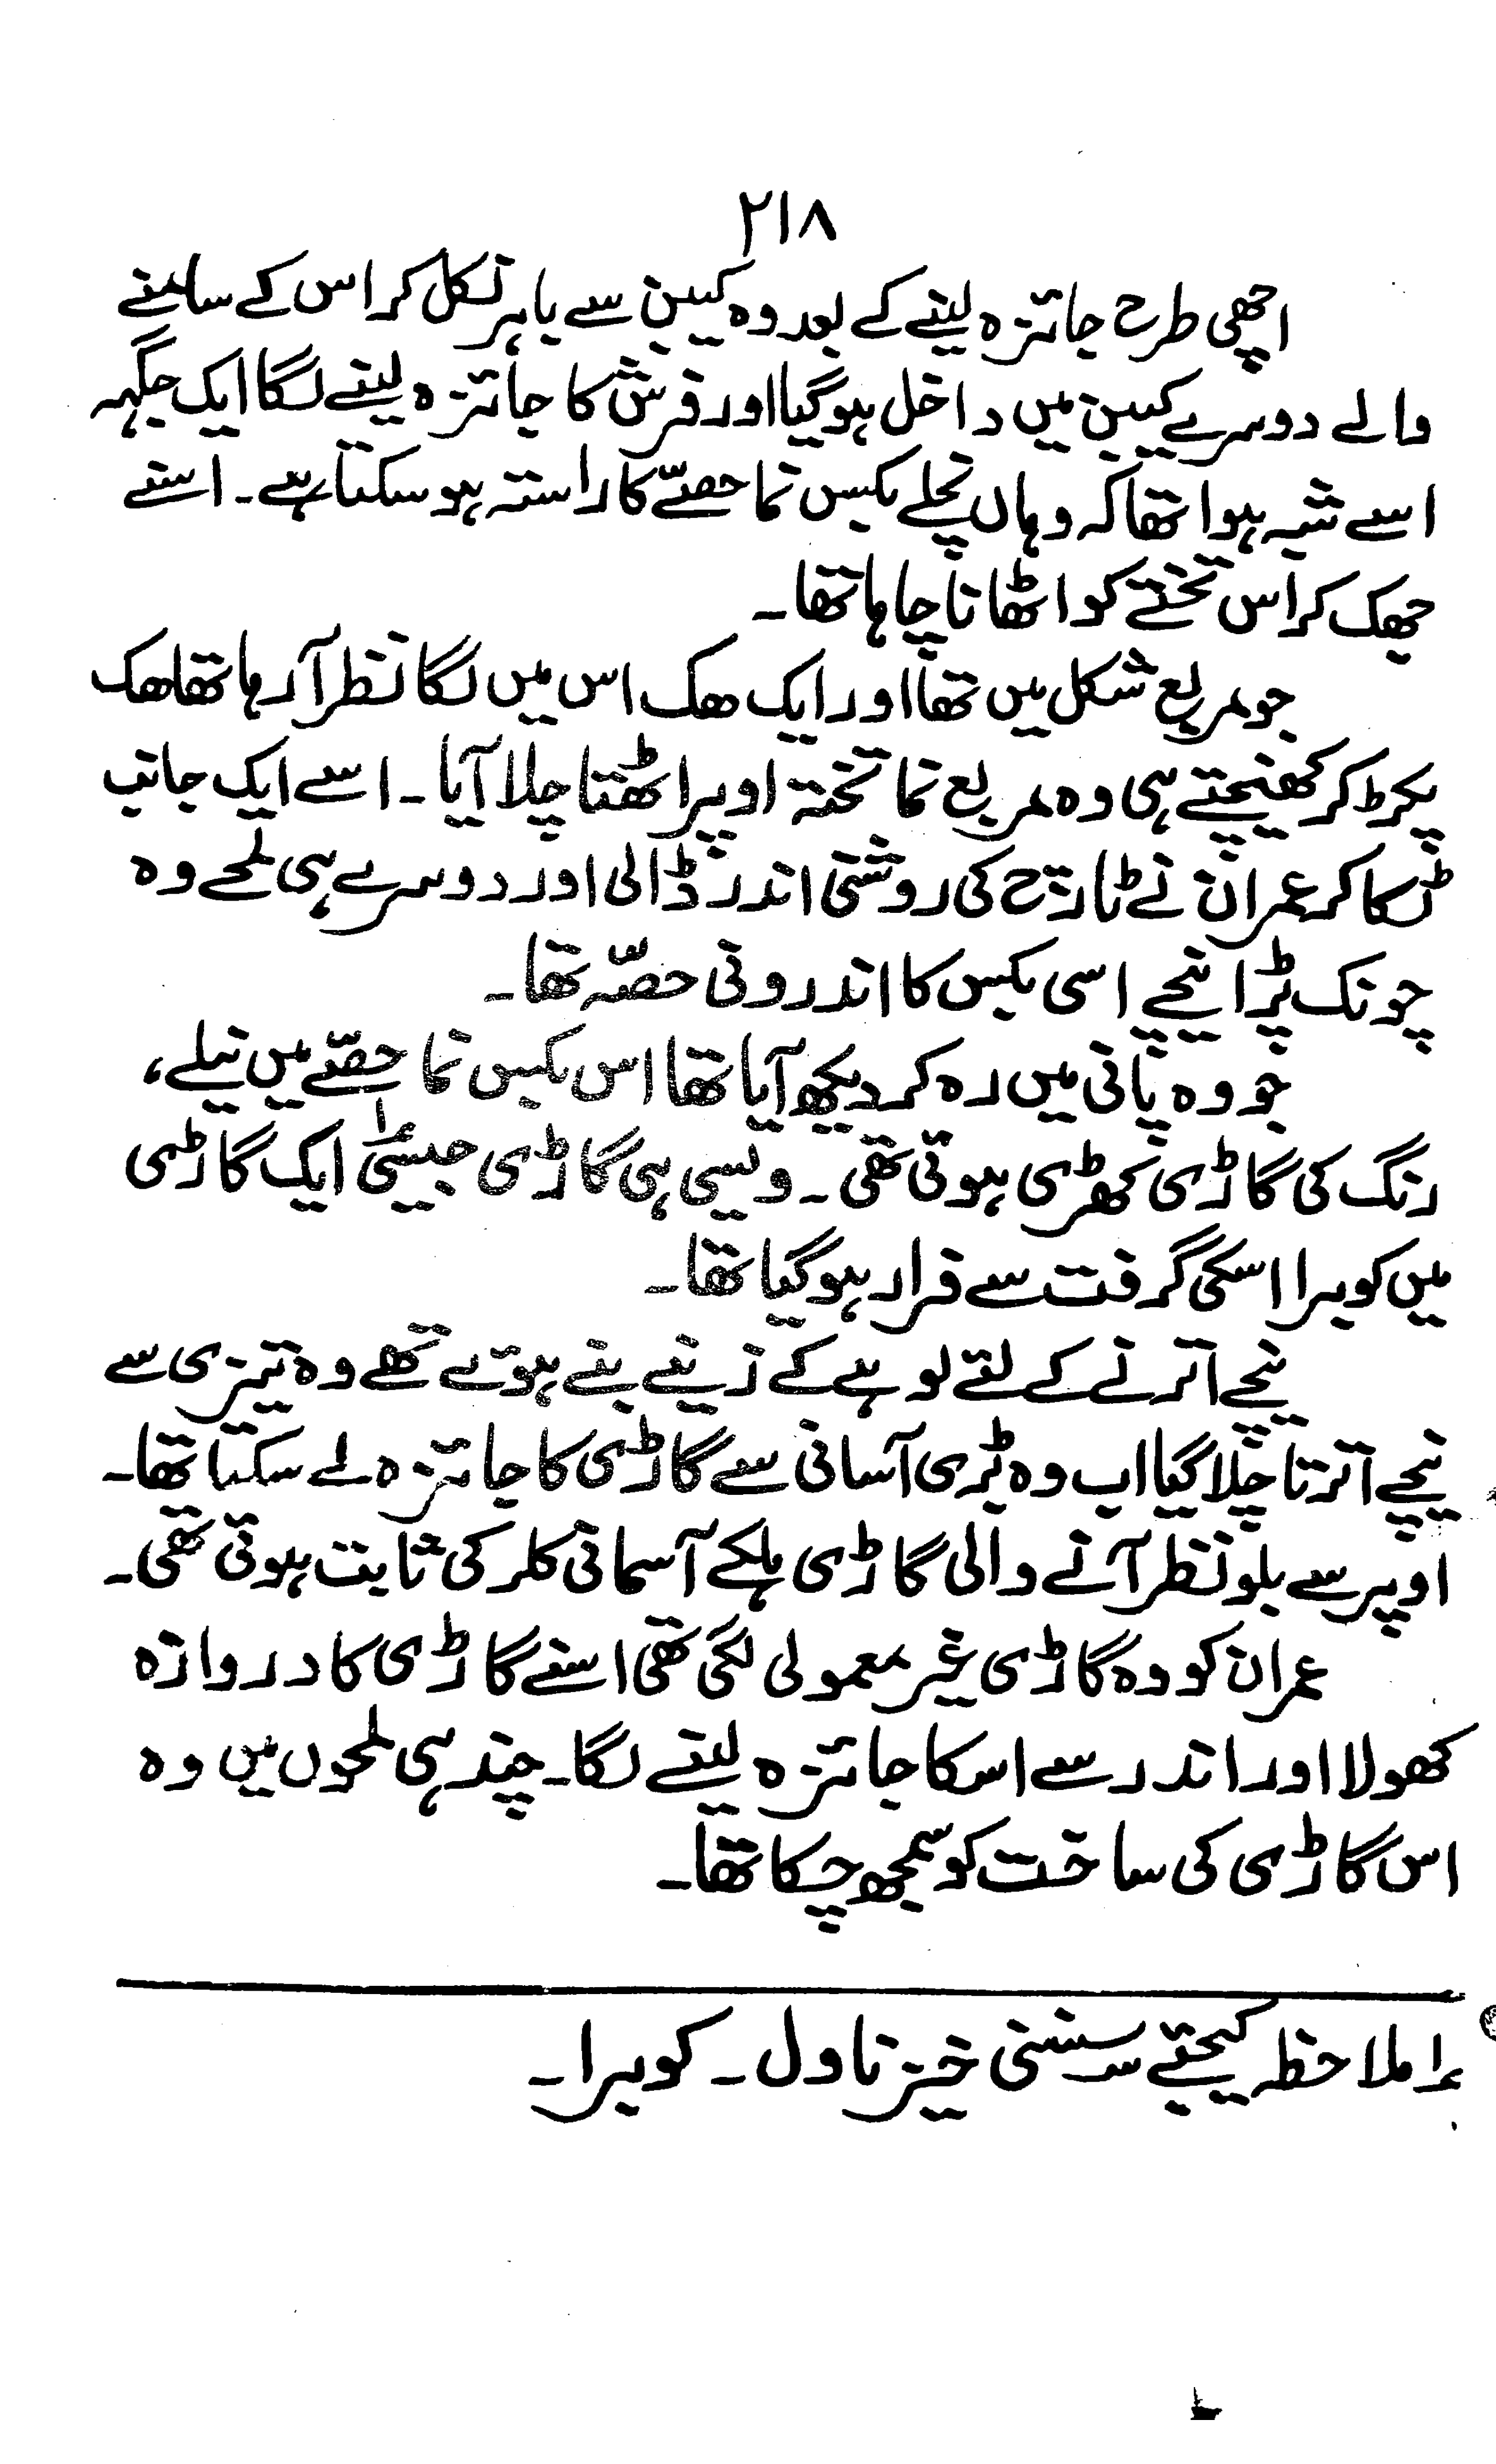 ۲۱۸
اچھی طرح جائزہ لینے کے بعد وہ کیبن سے باہر نکل کر اس کے سامنے
والے دوسرے کیبن میں داخل ہو گیا اور فرش کا جائزہ لینے لگا ایک جگہ
اسے شبہ ہوا تھا کہ وہاں نچلے بکس نما حصّے کا راستہ ہو سکتا ہے۔ اسنے
جھک کر اس تختے کو اٹھانا چاہا تھا۔
جو مربع شکل میں تھا اور ایک ھک اس میں لگا نظر آ رہا تھا ھک
پکڑ کر کھینچتے ہی وہ مربع نما تختہ اوپر اٹھتا چلا آیا۔ اسے ایک جانب
ٹکا کر عمران نے ٹارچ کی روشنی اندر ڈالی اور دوسرے ہی لمحے وہ
چونک پڑا نیچے اسی بکس کا اندرونی حصّہ تھا۔
جو وہ پانی میں رہ کر دیکھ آیا تھا اس بکس نما حصّے میں نیلے،
رنگ کی گاڑی کھڑی ہوئی تھی۔ ویسی ہی گاڑی جیسی ۱؎ ایک گاڑی
میں کوبرا اسکی گرفت سے فرار ہو گیا تھا۔
نیچے اترنے کے لئے لوہے کے زینے بنے ہوئے تھے وہ تیزی سے
نیچے اترتا چلا گیا اب وہ بڑی آسانی سے گاڑی کا جائزہ لے سکتا تھا۔
اوپر سے بلو نظر آنے والی گاڑی ہلکے آسمانی کلر کی ثابت ہوئی تھی۔
عمران کو وہ گاڑی غیر معمولی لگی تھی اسنے گاڑی کا دروازہ
کھولا اور اندر سے اسکا جائزہ لینے لگا۔ چند ہی لمحوں میں وہ
اس گاڑی کی ساخت کو سمجھ چکا تھا۔
۱؎ ملاحظہ کیجئے سنسنی خیز ناول۔ کوبرا۔